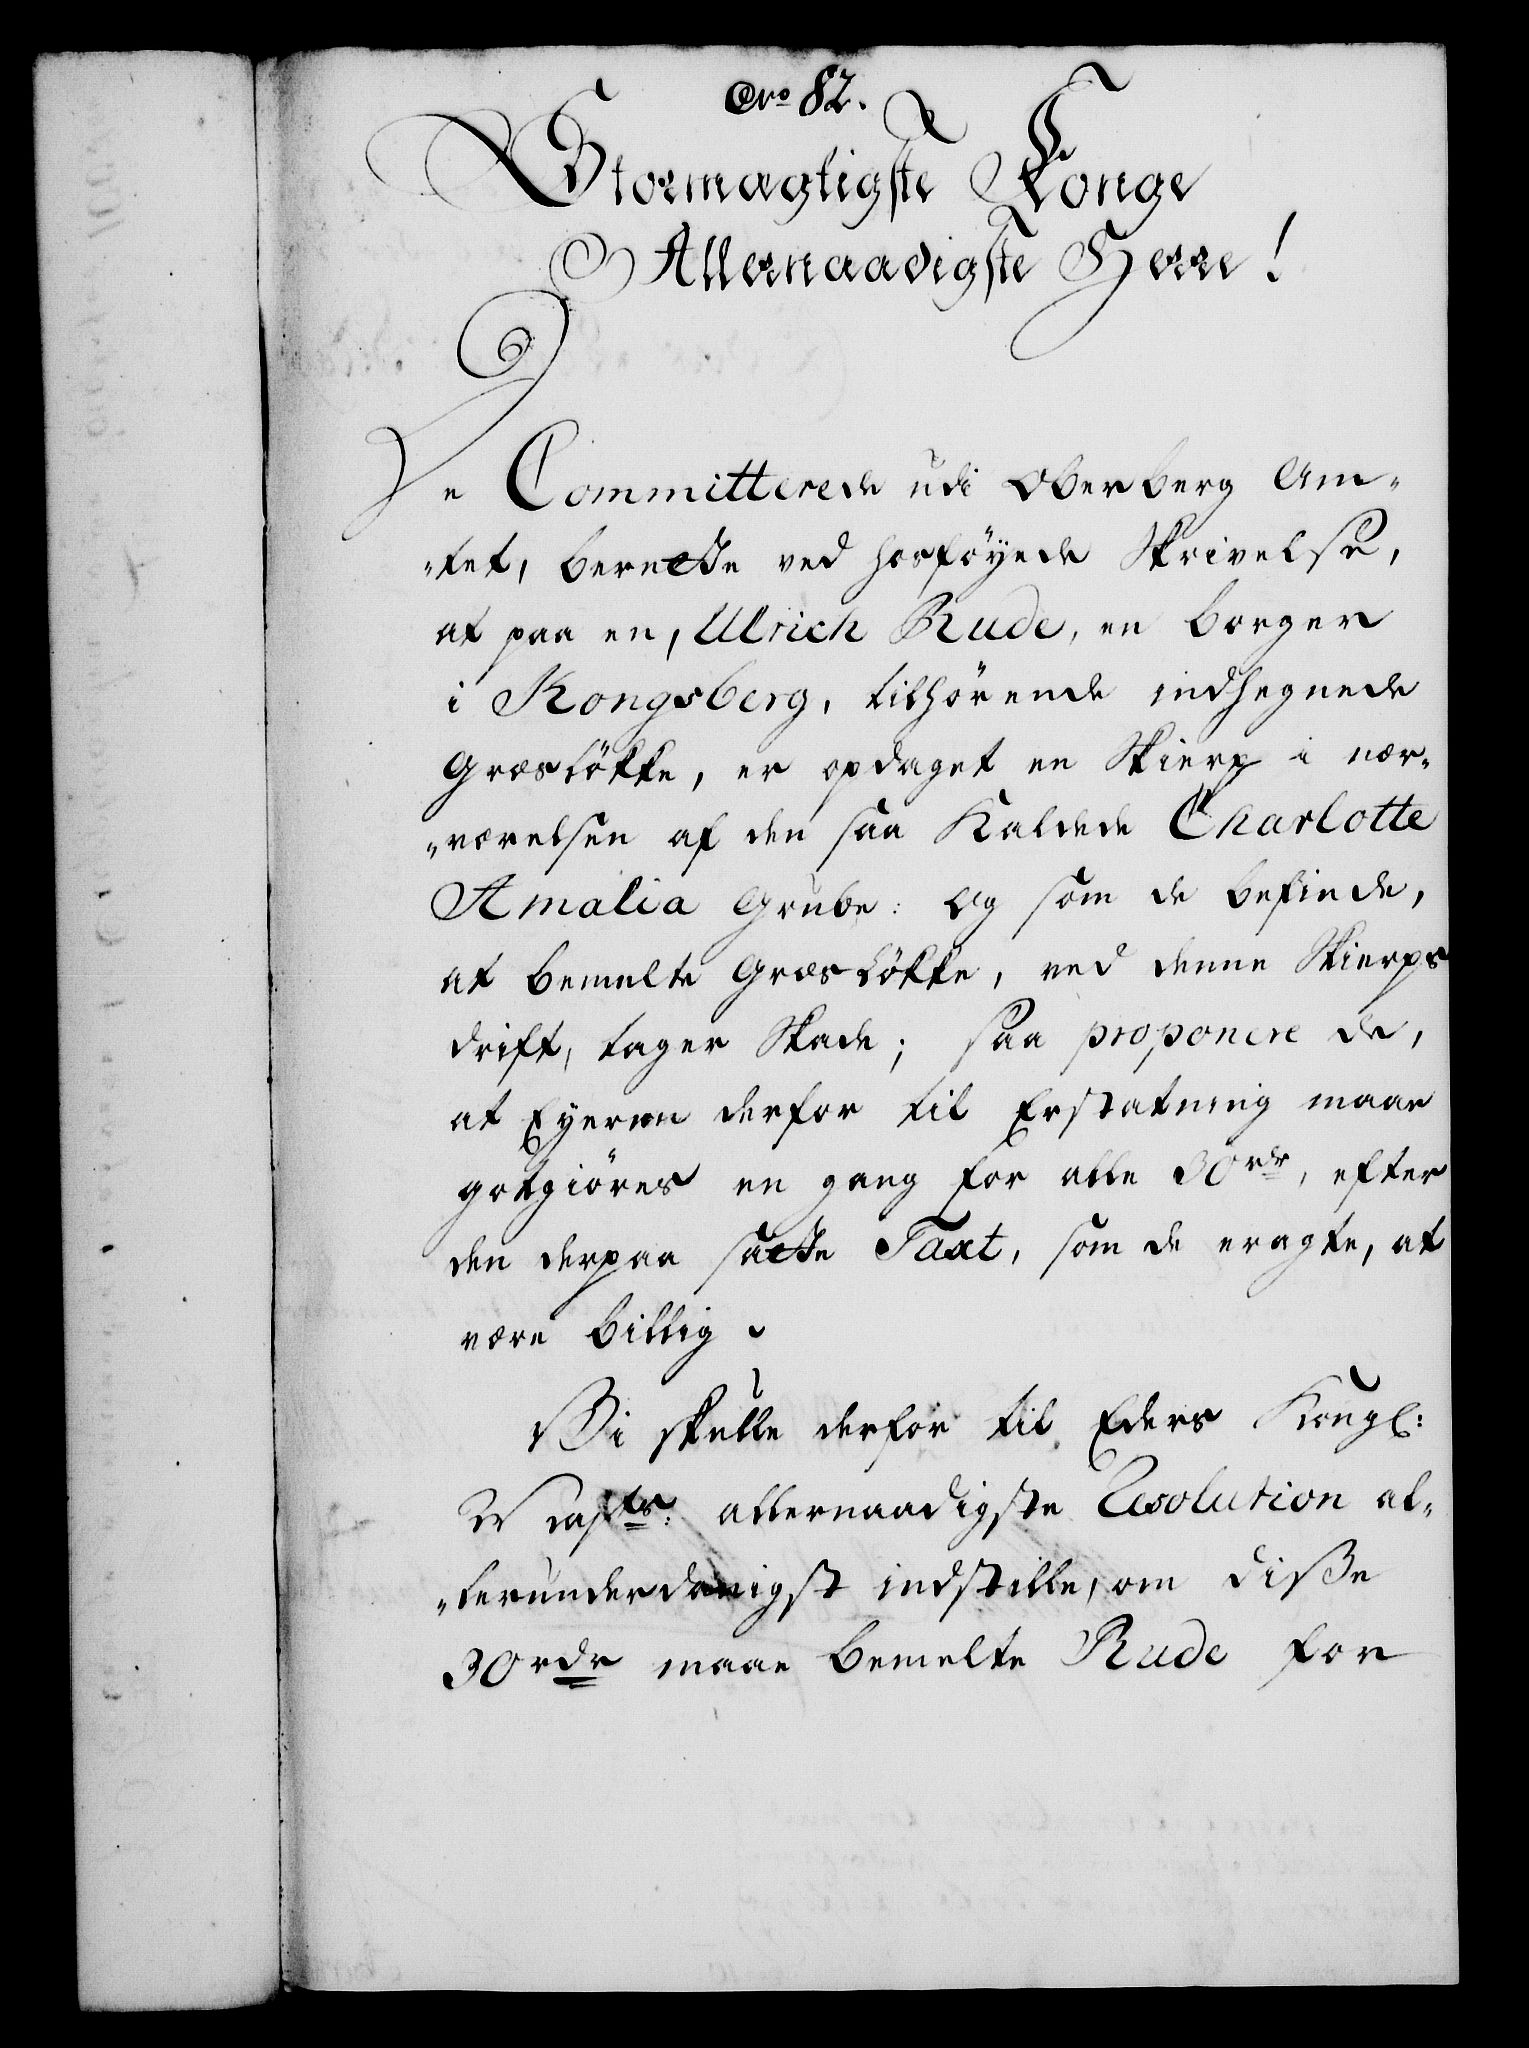 Nro 82.
Stormægtigste Konge
Allernaadigste Herre!
De Committerede udi Oberberg Am-
"tet, berette ved hosföyede Skrivelse,
at paa en, Ulrich Rude, en borger
i Kongsberg, tilhörende indhegnede
Græslökke, er opdaget en Skierp i nær-
"værelsen af den saa Kaldede Charlotte
Amalia Grube: Og som de befinde,
at bemelte Græslökke, ved denne Skierps
drift, tager Skade; saa proponere de,
at Eyeren derfor til Erstatning maae
gotgiöres en gang for alle 30rdr, efter
den derpaa satte Taxt, som de eragte, at
være billig.
Vi skulle derfor til Eders Kongl:
Mayts: allernaadigste Resolution al-
"lerunderdanigst indstille, om diße
30rdr maae bemelte Rude for